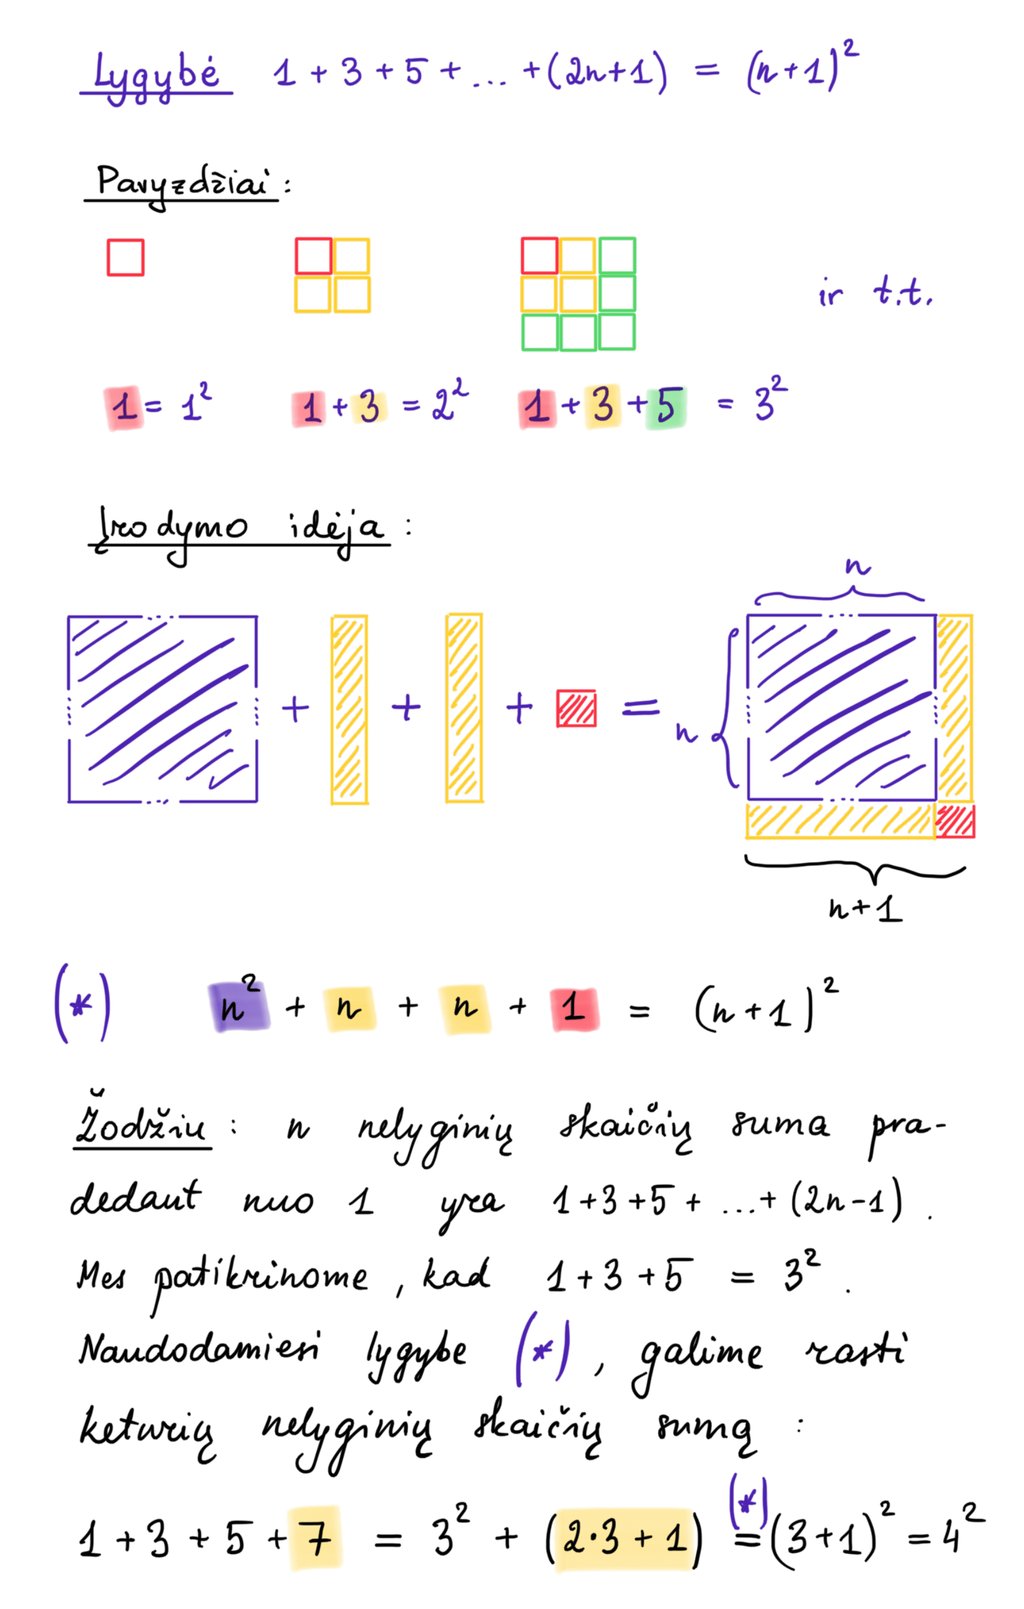 Lygybė 1 + 3 + 5 + ... + (2n+1) = (n+1)²
Pavyzdžiai:
ir t.t.
1 = 1² 1 + 3 = 2² 1 + 3 + 5 = 3²
Įrodymo idėja:
n
+ + + = n
n+1
(*) n² + n + n + 1 = (n+1)²
Žodžiu: n nelyginių skaičių suma pra-
dedant nuo 1 yra 1+3+5+ ...+ (2n-1).
Mes patikrinome, kad 1+3+5 = 3².
Naudodamiesi lygybe (*), galime rasti
keturių nelyginių skaičių sumą:
(*)
1 + 3 + 5 + 7 = 3² + (2·3 + 1) = (3+1)² = 4²